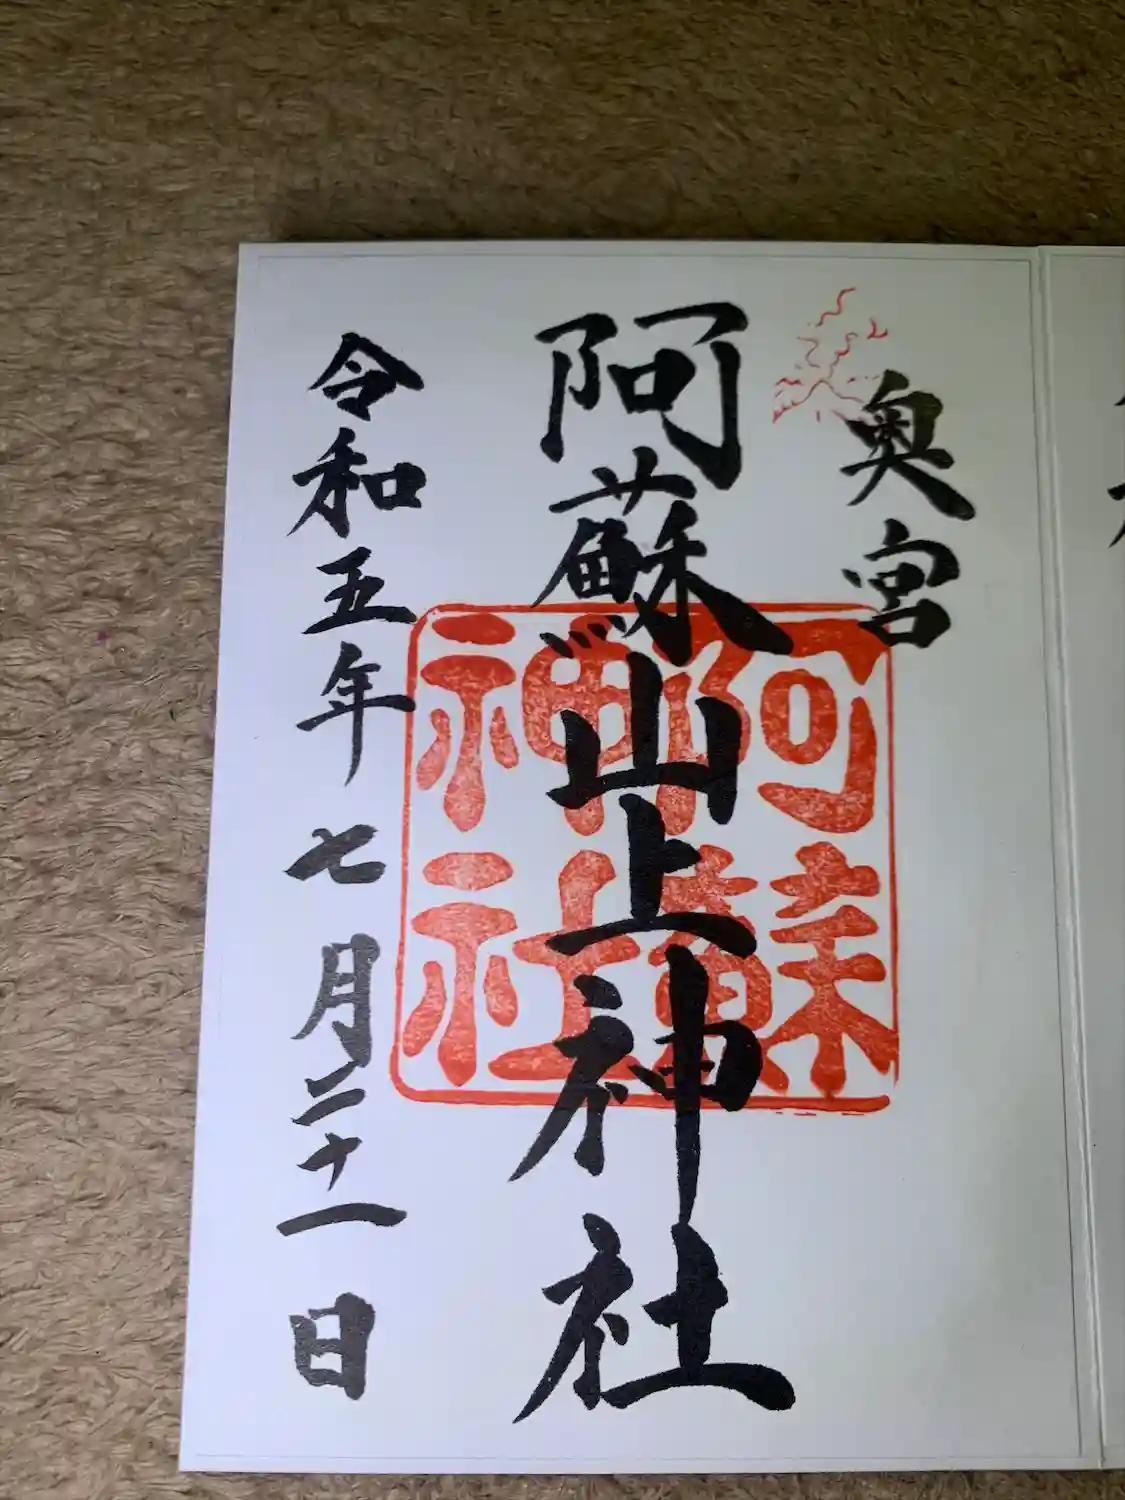 奥宮
阿蘇山上神社
阿蘇
神社
令和五年七月二十一日